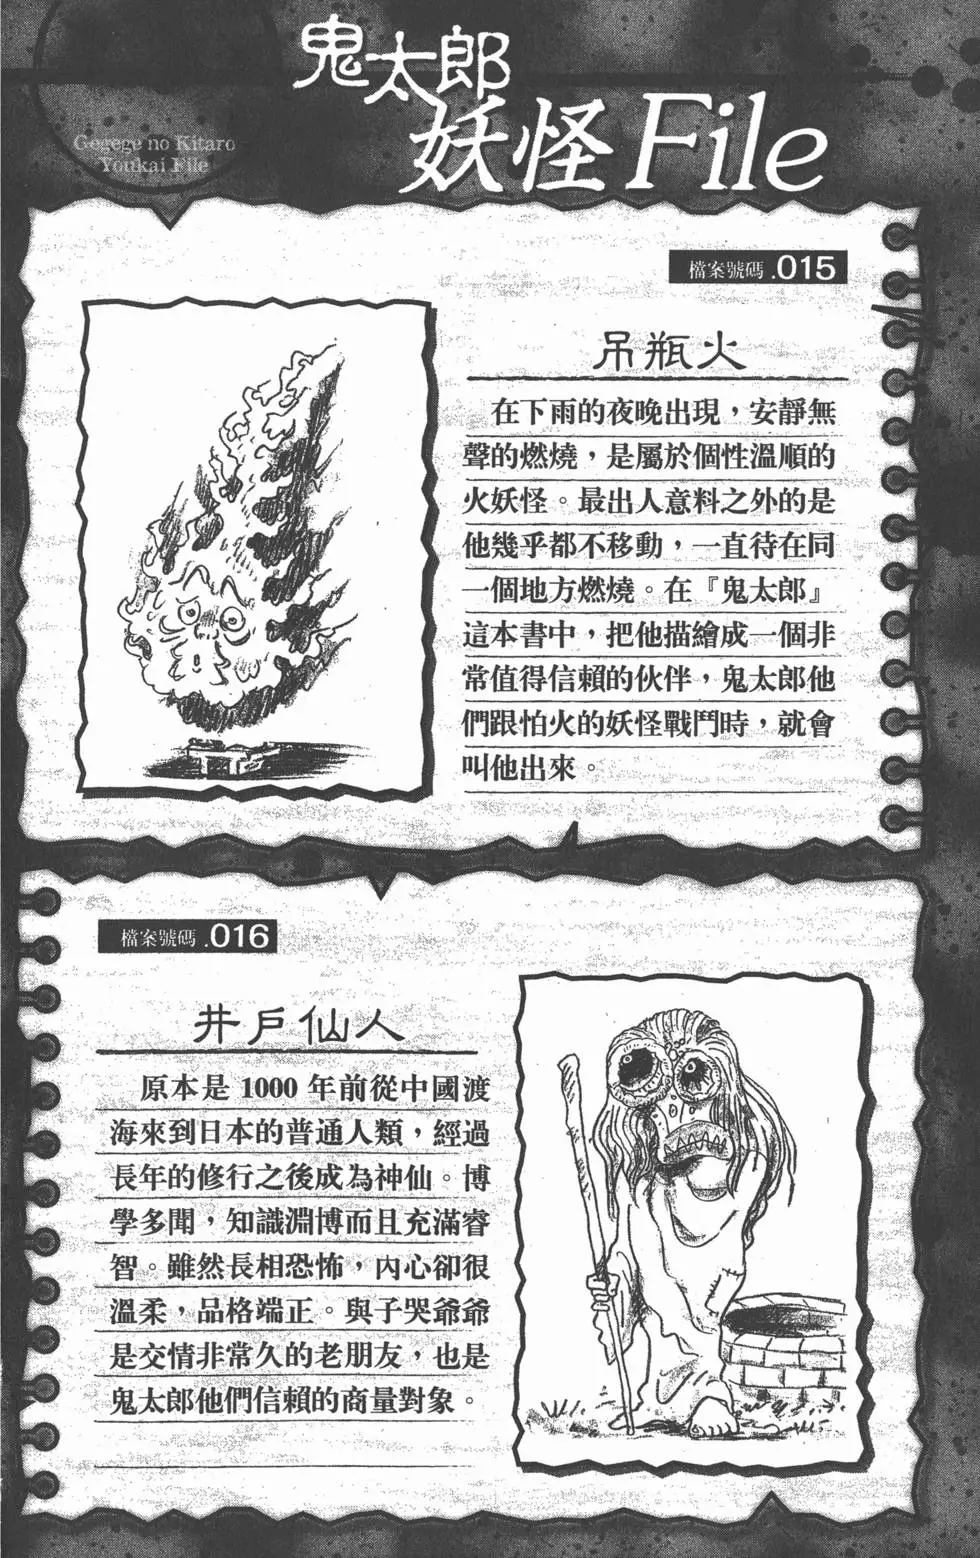 鬼太郎
妖怪File
Gegege no Kitaro
Youkai File
檔案號碼.015
吊瓶火
在下雨的夜晚出現，安靜無
聲的燃燒，是屬於個性溫順的
火妖怪。最出人意料之外的是
他幾乎都不移動，一直待在同
一個地方燃燒。在『鬼太郎』
這本書中，把他描繪成一個非
常值得信賴的伙伴，鬼太郎他
們跟怕火的妖怪戰鬥時，就會
叫他出來。
檔案號碼.016
井戶仙人
原本是1000年前從中國渡
海來到日本的普通人類，經過
長年的修行之後成為神仙。博
學多聞，知識淵博而且充滿睿
智。雖然長相恐怖，內心卻很
溫柔，品格端正。與子哭爺爺
是交情非常久的老朋友，也是
鬼太郎他們信賴的商量對象。